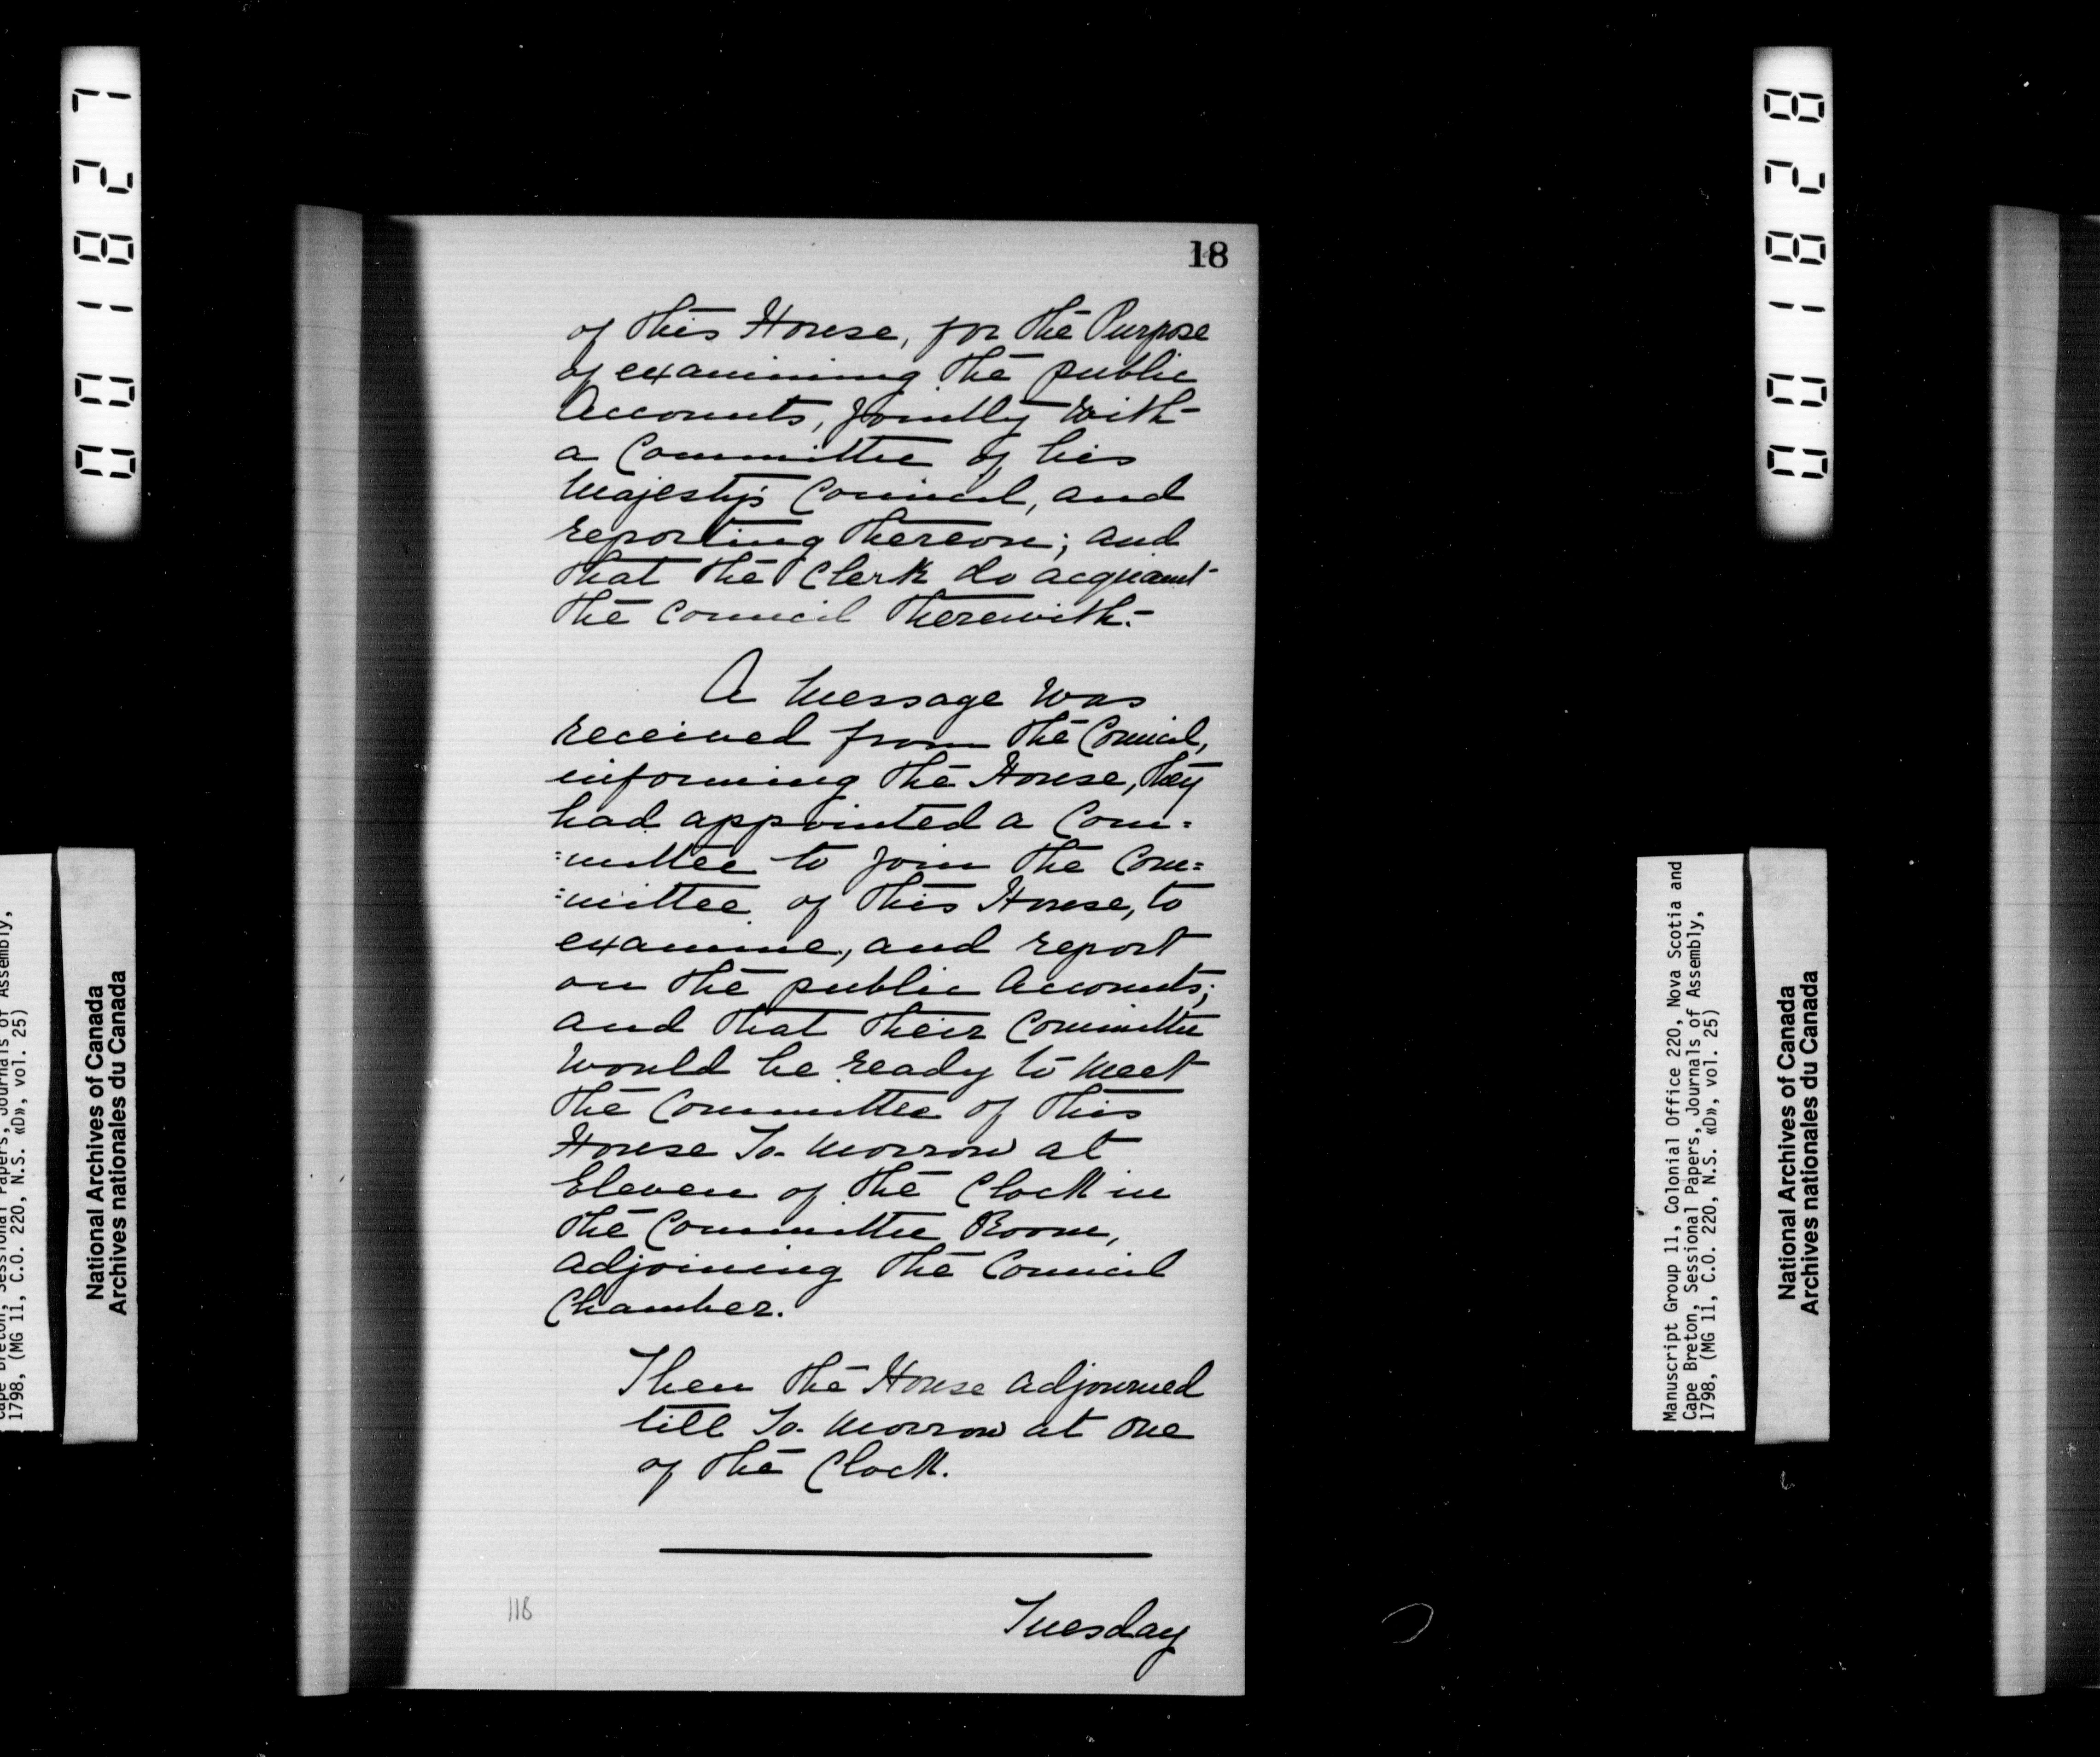 001827
001828
18
of this House, for the Purpose
of examining the public
Accounts, jointly with
a Committee of his
Majesty's Council, and
reporting thereon; and
that the Clerk do acquaint
the Council therewith.
A Message was
received from the Council,
informing the House, they
had appointed a Com=
=mittee to join the Com=
=mittee of this House, to
examine, and report
on the public Accounts;
and that their Committee
would be ready to meet
the Committee of this
House To-morrow at
Eleven of the Clock in
the Committee Room,
adjoining the Council
Chamber.
Then the House adjourned
till To-morrow at one
of the Clock.
118
Tuesday
Cape Breton, Sessional Papers, Journals of Assembly,
1798, (MG 11, C.O. 220, N.S. «D», vol. 25)
National Archives of Canada
Archives nationales du Canada
Manuscript Group 11, Colonial Office 220, Nova Scotia and
Cape Breton, Sessional Papers, Journals of Assembly,
1798, (MG 11, C.O. 220, N.S. «D», vol. 25)
National Archives of Canada
Archives nationales du Canada